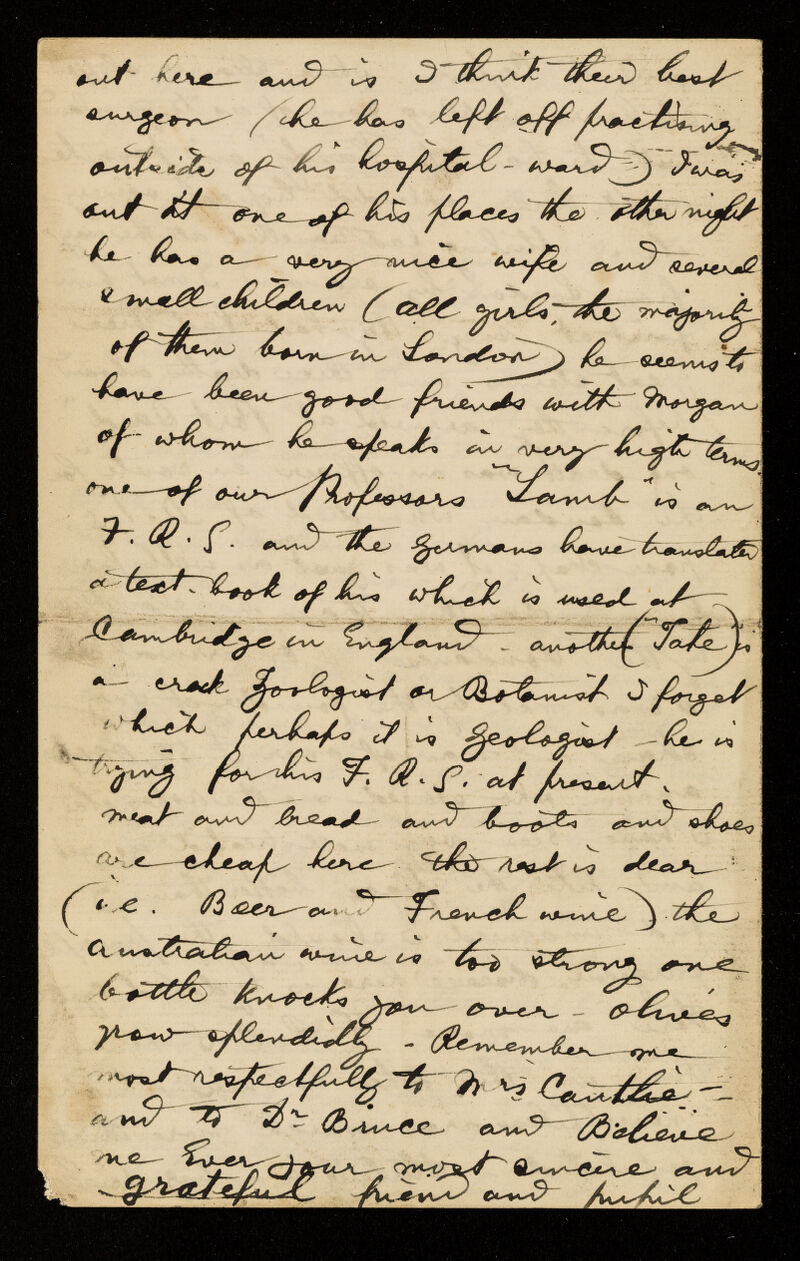 out here and is I think their best
surgeon (he has left off practising
outside of his hospital-ward) I was
out at one of his places the other night
he has a very nice wife and several
small children (all girls, the majority
of them born in London) he seems to
have been good friends with Morgan
of whom he speaks in very high terms.
one of our Professors "Lamb" is an
F. R. S. and the Germans have translated
a text-book of his which is used at
Cambridge in England - another ("Tate") is
a crack Zoologist or Botanist I forget
which perhaps it is Geologist - he is
trying for his F. R. S. at present.
meat and bread and boots and shoes
are cheap here the rest is dear
(i.e. Beer and French wine) the
australian wine is too strong one
bottle knocks you over - olives
grow splendidly - Remember me
most respectfully to Mrs Cantlie -
and to Dr Bruce and Believe
me Ever your most sincere and
grateful friend and pupil